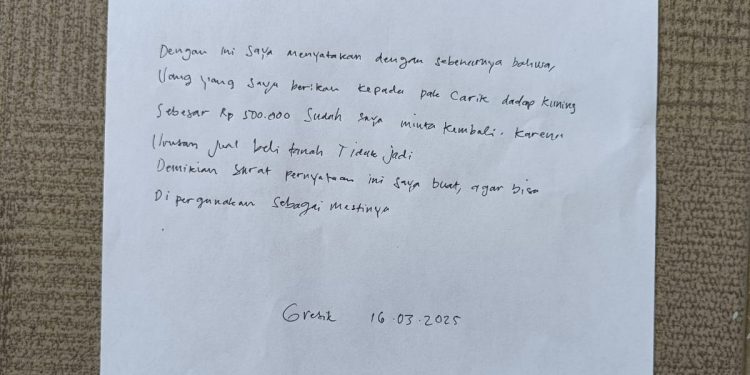 Dengan ini saya menyatakan dengan sebenarnya bahwa,
Uang yang saya berikan kepada pak Carik dadap kuning
Sebesar Rp 500.000 Sudah saya minta kembali. Karena
Urusan Jual beli tanah Tidak jadi
Demikian surat pernyataan ini saya buat, agar bisa
Di pergunakan sebagai mestinya
Gresik 16.03.2025